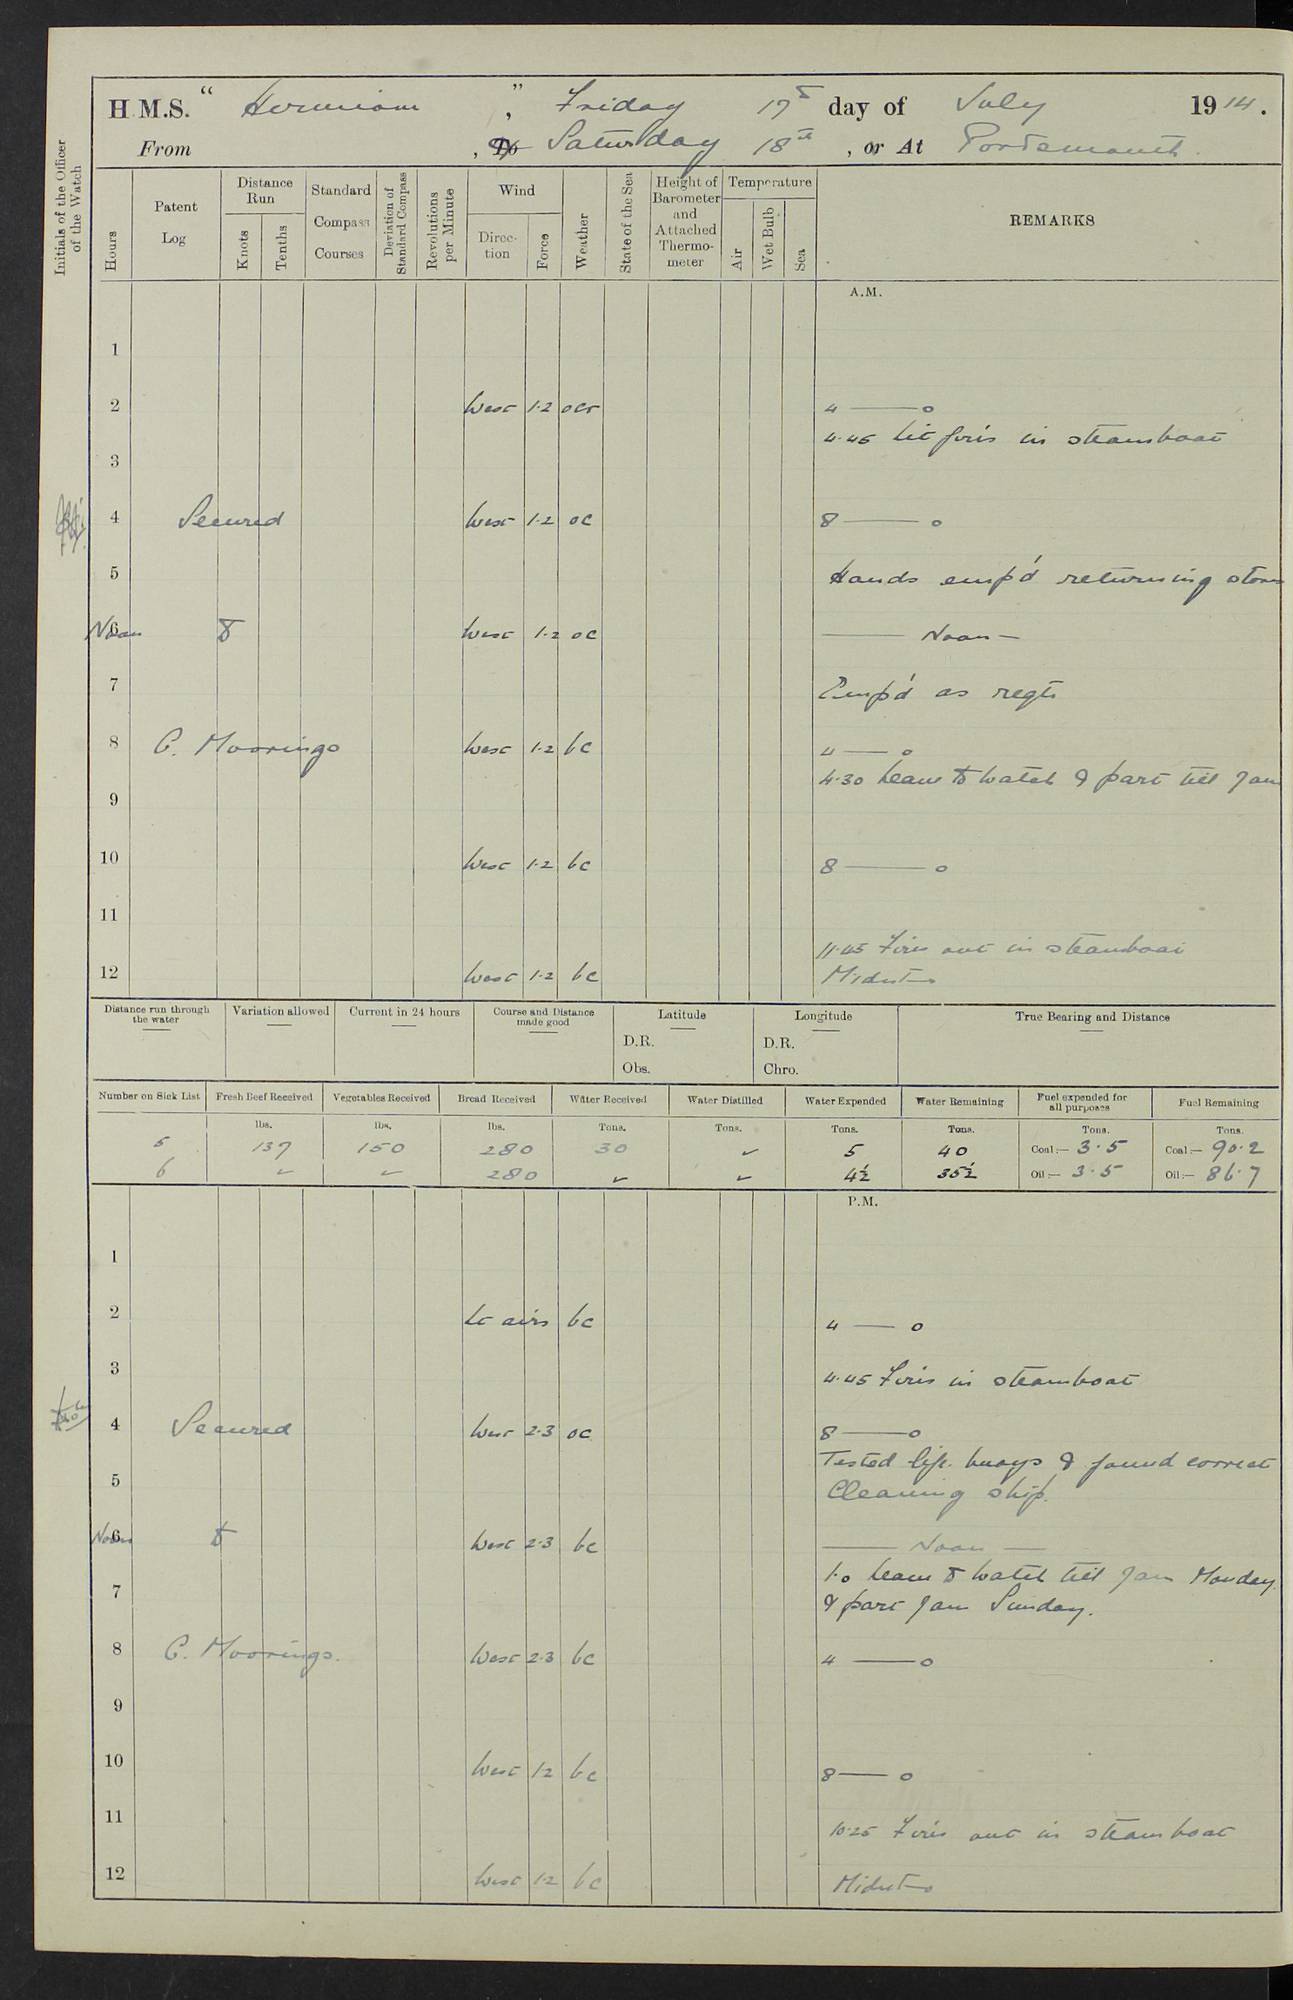 H.M.S. " Hermione " , Friday 17th day of July 1914.
From , & Saturday 18th , or At Portsmouth.
Initials of the Officer of the Watch
Hours
Patent Log
Distance Run
Knots
Tenths
Standard Compass Courses
Deviation of Standard Compass
Revolutions per Minute
Wind
Direction
Force
Weather
State of the Sea
Height of Barometer and Attached Thermometer
Temperature
Air
Wet Bulb
Sea
REMARKS
A.M.
1
2 West 1.2 ocr 4 — o
4.45 lit fires in steamboat
3
4 Secured West 1.2 oc 8 — o
5 Hands emp'd returning stores
6 Noon to West 1.2 oc — Noon —
7 Emp'd as reqte
8 C. Moorings West 1.2 bc 4 — o
4.30 Leave to watch & part till 7am
9
10 West 1.2 bc 8 — o
11
11.45 Fires out in steamboat
12 West 1.2 bc Midnt
Distance run through the water
Variation allowed
Current in 24 hours
Course and Distance made good
Latitude
D.R.
Obs.
Longitude
D.R.
Chro.
True Bearing and Distance
Number on Sick List Fresh Beef Received Vegetables Received Bread Received Water Received Water Distilled Water Expended Water Remaining Fuel expended for all purposes Fuel Remaining
lbs. lbs. lbs. Tons. Tons. Tons. Tons. Tons. Tons.
5 137 150 280 30 ✓ 5 40 Coal:— 3.5 Coal:— 90.2
6 ✓ ✓ 280 ✓ ✓ 4½ 35½ Oil:— 3.5 Oil:— 86.7
P.M.
1
2 Lt airs bc 4 — o
3 4.45 Fires in steamboat
4 Secured West 2.3 oc 8 — o
Tested life buoys & found correct
5 Cleaning ship.
6 Noon to West 2.3 bc — Noon —
1.0 Leave to watch till 7am Monday
7 & part 7am Sunday.
8 C. Moorings. West 2.3 bc 4 — o
9
10 West 1.2 bc 8 — o
11 10.25 Fires out in steamboat
12 West 1.2 bc Midnt